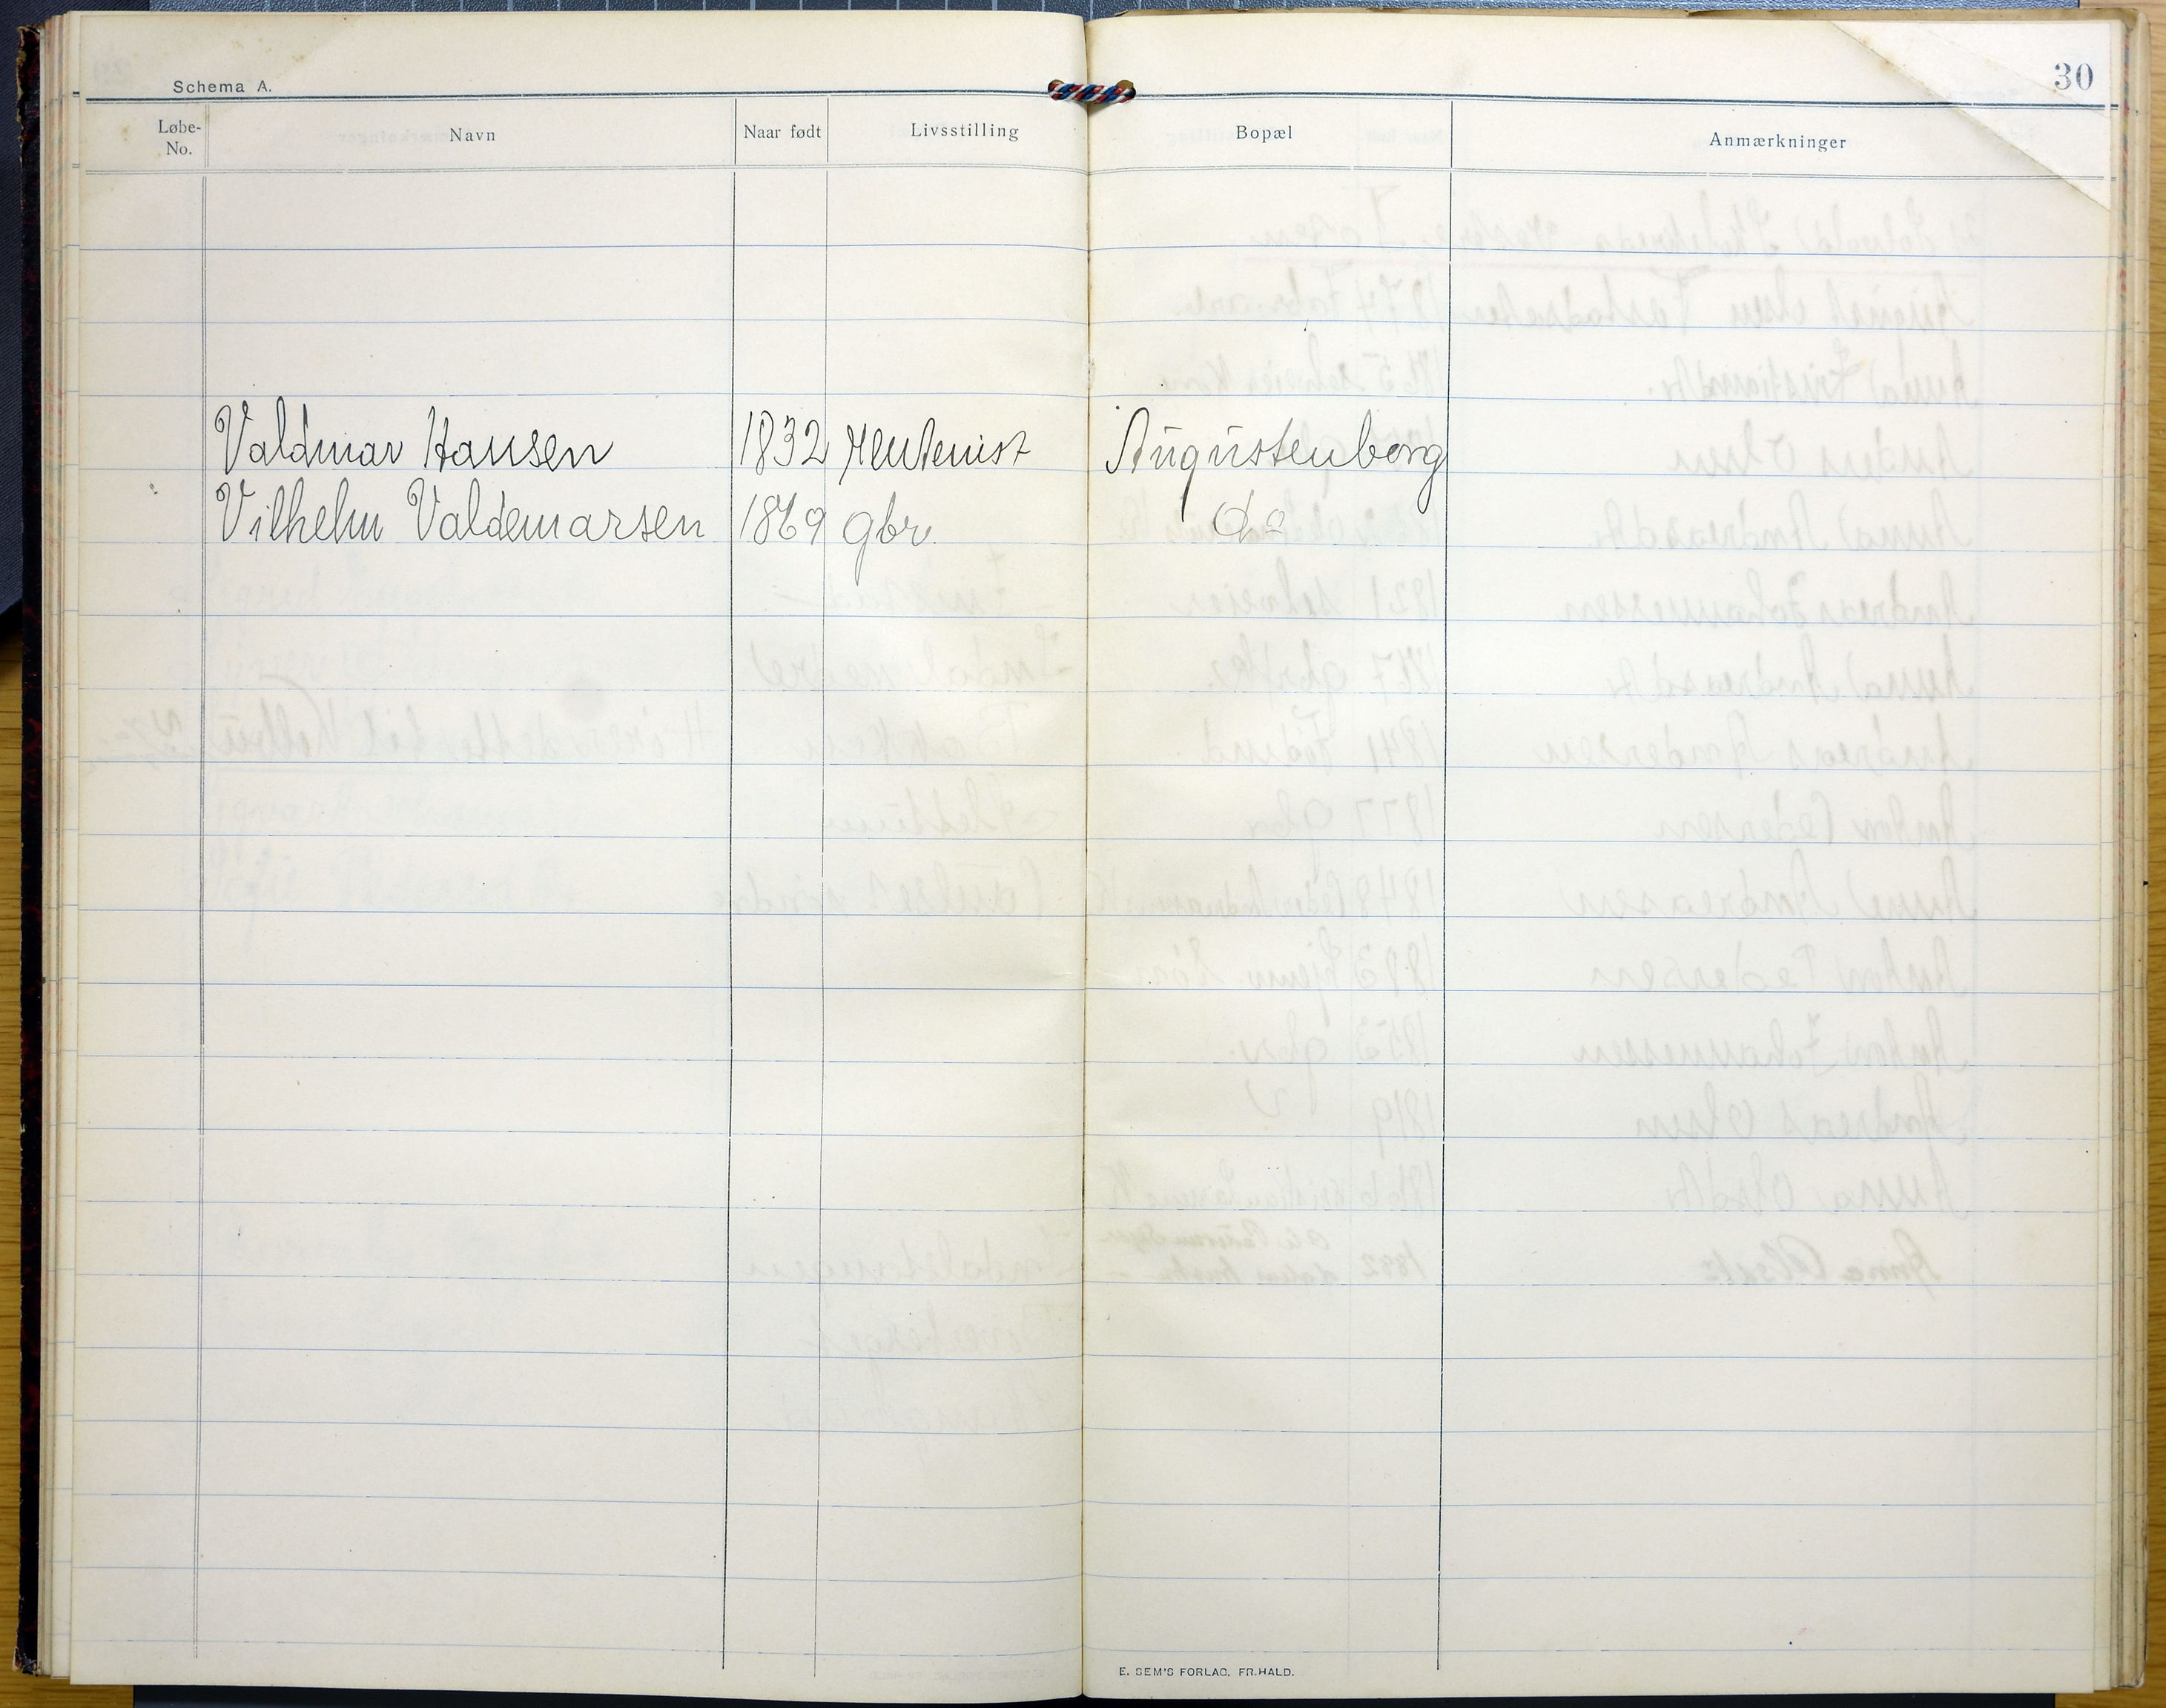 Schema A.
30
Løbe-No. Navn Naar født Livsstilling Bopæl Anmærkninger
Valdmar Hansen 1832 Rentenist Augustenborg
Vilhelm Valdemarsen 1869 gbr. do
E. SEM'S FORLAG, FR. HALD.